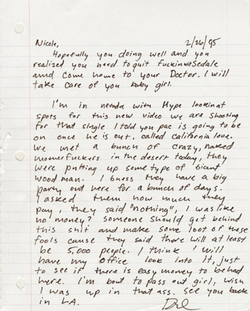 Nicole, 2/26/95
Hopefully you doing well and you
realized you need to quit
and come home to your Doctor. I will
take care of you baby girl.
I'm in nevada with Hype lookinat
spots for this new video we are shooting
for that single I told you pac is going to be
on once he is out. called California love.
We met a bunch of crazy, naked
in the desert today, they
were putting up some type of giant
wood man. I guess they have a big
party out here for a bunch of days.
I asked them how much they
pay, they said "nothing", I was like
no money? someone should get behind
this shit and make some loot off these
fools cause they said there will at least
be 5,000 people. I think I will
have my office look into it, just
to see if there is easy money to be had
here. I'm bout to pass out girl, wish
I was up in that ass. see you back
in LA.
Dre